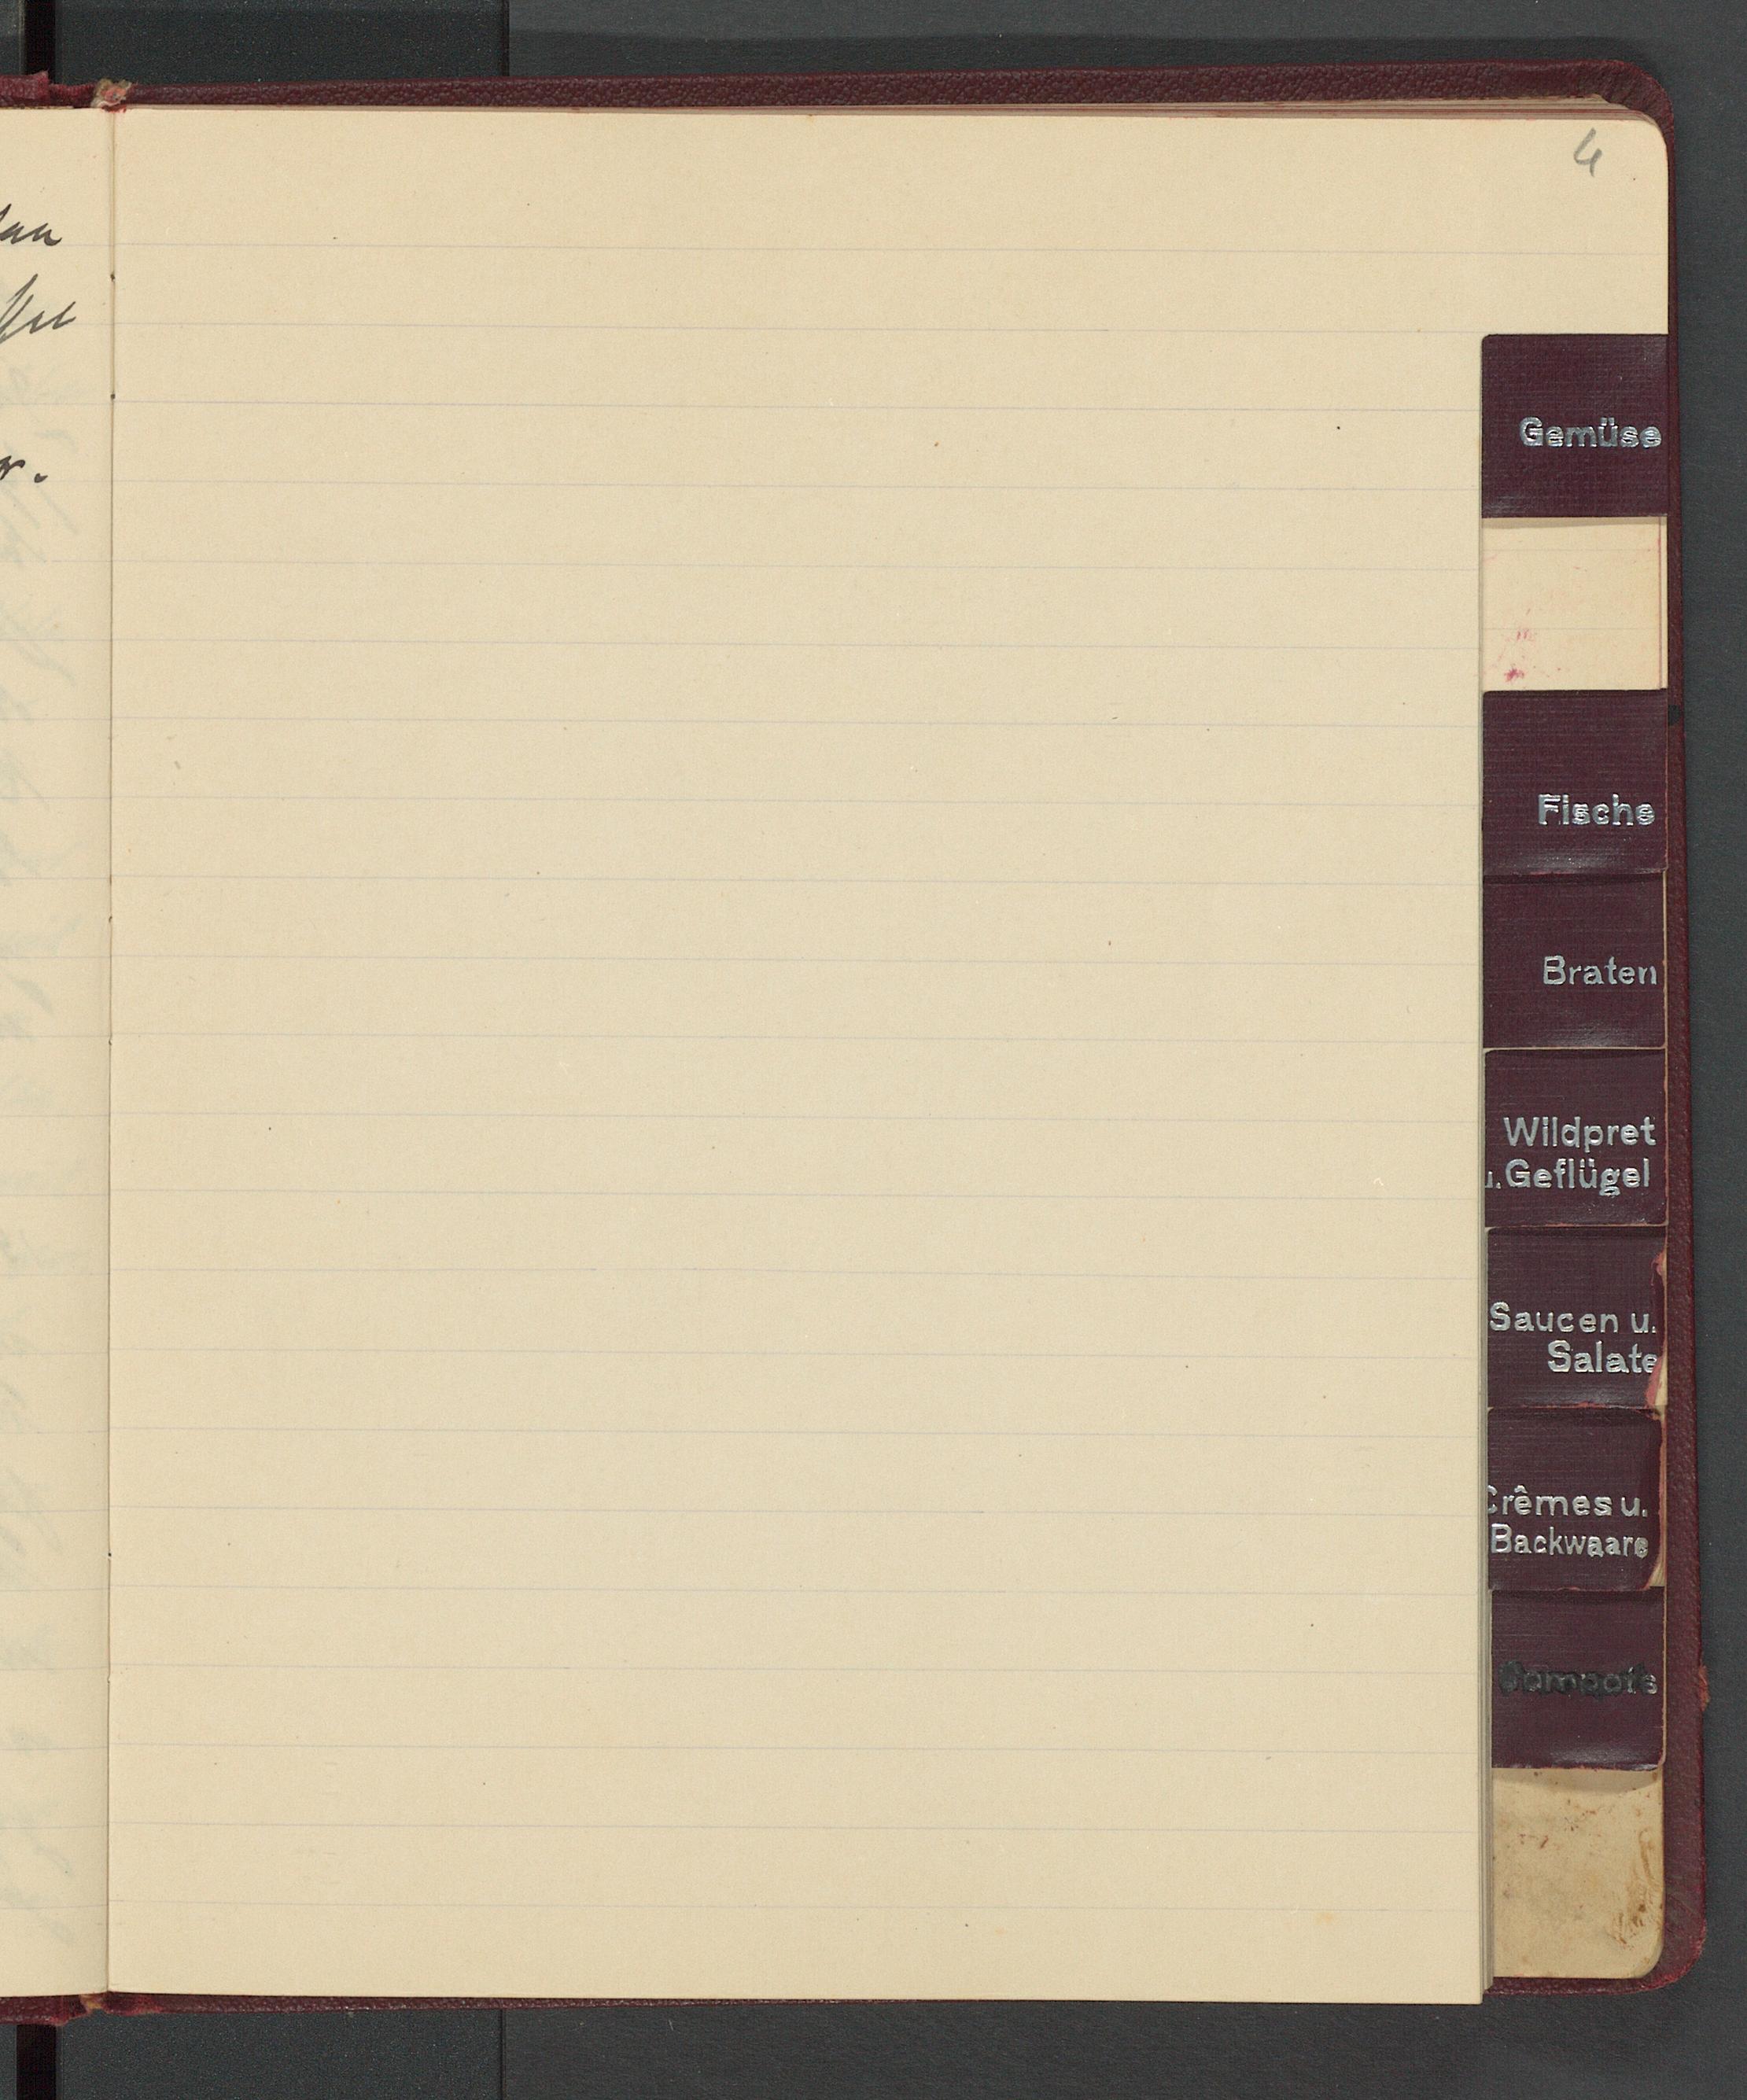 4
Gemüse
Fische
Braten
Wildpret
u. Geflügel
Saucen u.
Salate
Crêmes u.
Backwaare
Compots